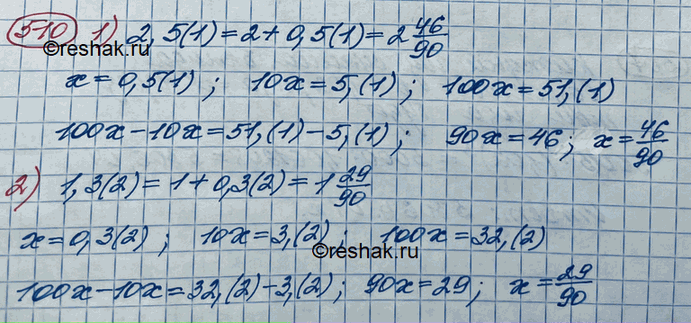 510 1) 2,5(1)=2+0,5(1)=2 46/90
©reshak.ru
x=0,5(1); 10x=5,(1); 100x=51,(1)
100x-10x=51,(1)-5,(1); 90x=46; x=46/90
2) 1,3(2)=1+0,3(2)=1 29/90
x=0,3(2); 10x=3,(2); 100x=32,(2)
©reshak.ru
100x-10x=32,(2)-3,(2); 90x=29; x=29/90